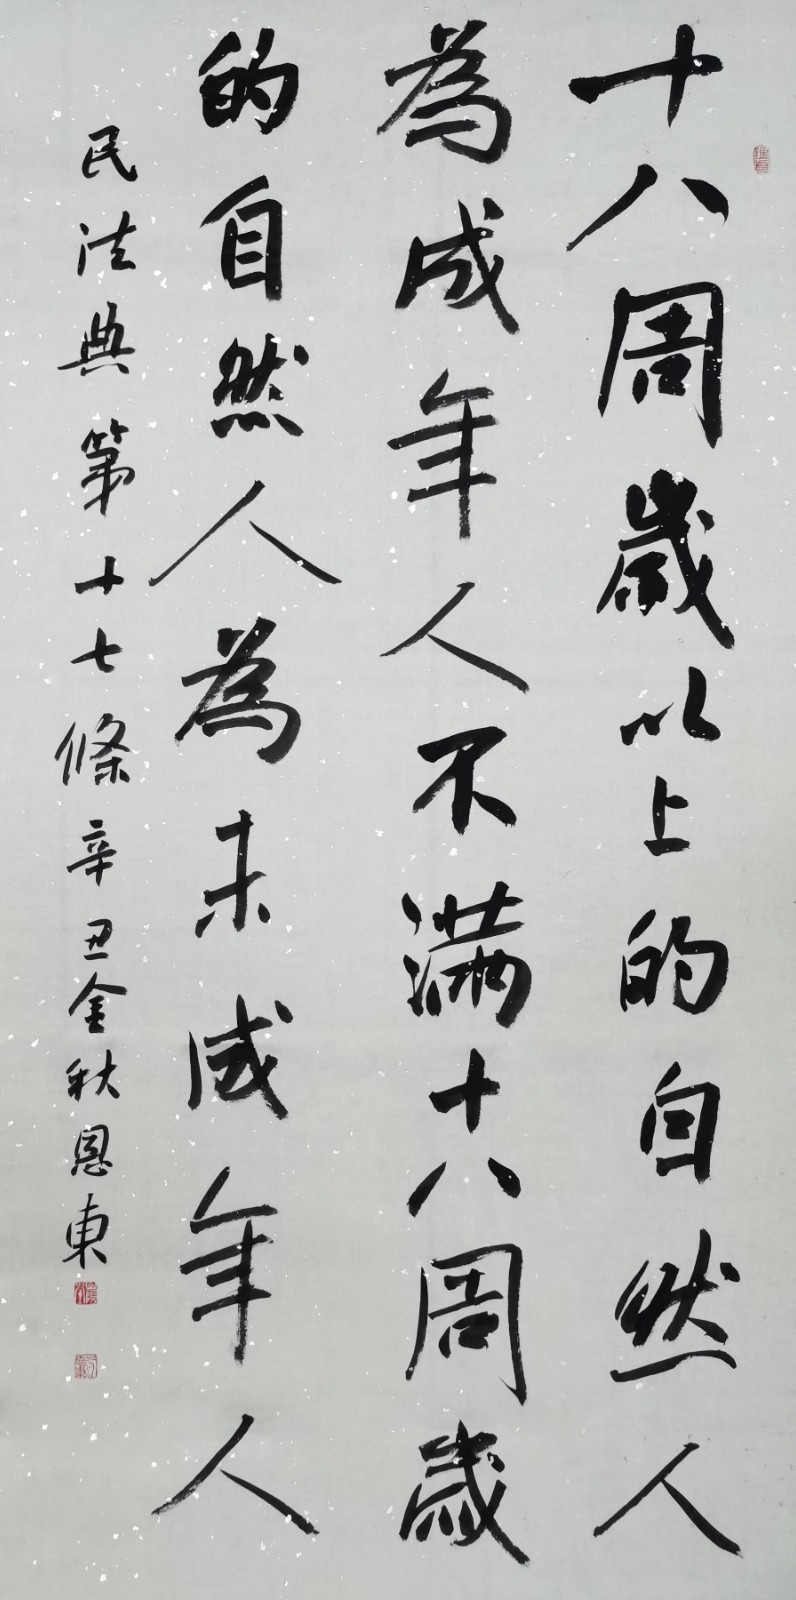 十八周歲以上的自然人
為成年人不滿十八周歲
的自然人為未成年人
民法典第十七條辛丑金秋恩東